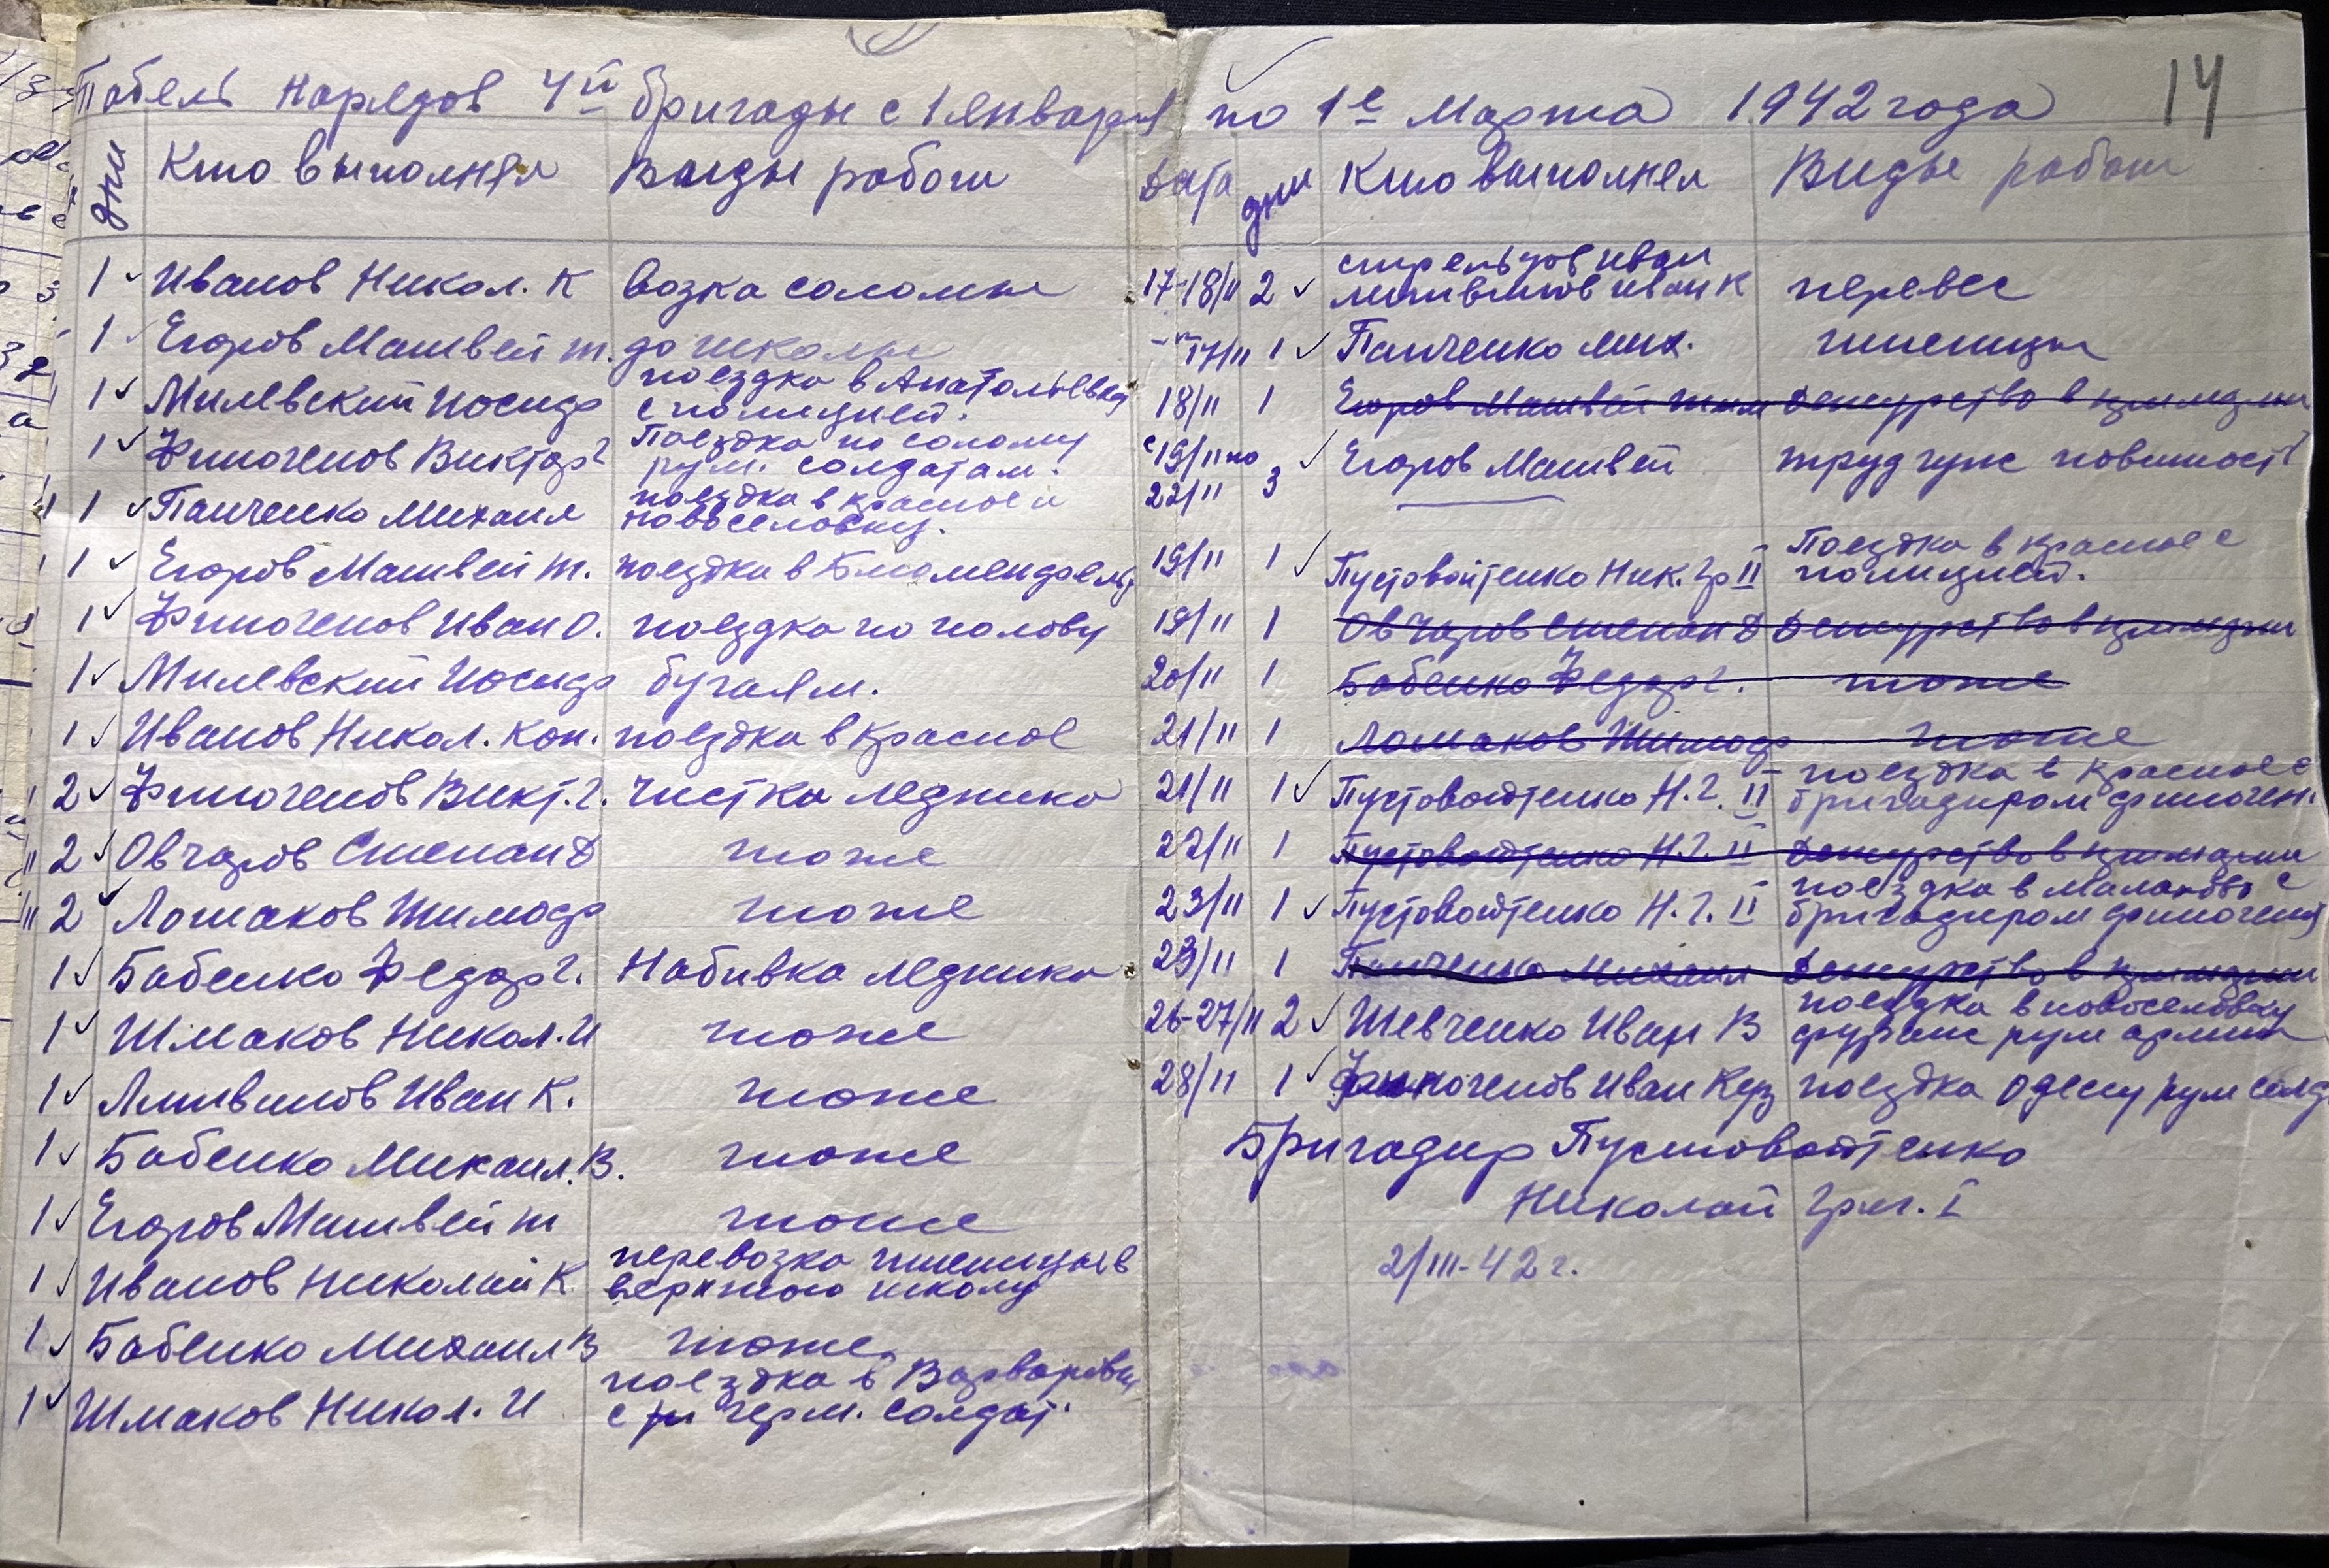 Табель нарядов 4й бригады с 1 января по 1е Марта 1942 года
14
дни Кто выполнял Виды работ
1 ✓ Иванов Никол. К возка соломы
1 ✓ Егоров Матвей т. до школы
1 ✓ Милевский Иосиф поездка в Анатольевку
с полицией.
1 ✓ Финогенов Виктор г Поездка по солому
рум. солдатам.
1 ✓ Панченко Михаил поездка в красное и
новоселовку.
1 ✓ Егоров Матвей т. поездка в Блюмендельф
1 ✓ Финогенов Иван О. поездка по полову
1 ✓ Милевский Иосиф бугаям.
1 ✓ Иванов Никол. Кон. поездка в Красное
2 ✓ Финогенов Викт. г. Чистка ледника
2 ✓ Овчаров Степан Д тоже
2 ✓ Лошаков Тимоф тоже
1 ✓ Бабенко Федор г. Набивка ледника
1 ✓ Шмаков Никол. И тоже
1 ✓ Литвинов Иван К. тоже
1 ✓ Бабенко Михаил. В. тоже
1 ✓ Егоров Матвей т тоже
1 ✓ Иванов Николай К перевозка пшеницы в
верхнюю школу
1 ✓ Бабенко Михаил В тоже
1 ✓ Шмаков Никол. И поездка в Варваровку
с герм. солдат.
Дата дни Кто выполнял Виды работ
17-18/II 2 ✓ стрельцов иван
литвинов иван К перевес
17/II 1 ✓ Панченко мих. пшеницы
18/II 1 Егоров Матвей тим Дежурство в
с 19/II по
22/II 3 ✓ Егоров Матвей труд гуж повиност
19/II 1 ✓ Пустовойтенко Ник. Гр II Поездка в красное с
полицией.
19/II 1 Овчаров Степан Д Дежурство в
20/II 1 Бабенко Федор г. тоже
21/II 1 Лошаков Тимоф тоже
21/II 1 ✓ Пустовойтенко Н. г. II поездка в красное с
бригадиром финоген.
22/II 1 Пустовойтенко Н. г. II Дежурство в
23/II 1 ✓ Пустовойтенко Н. г. II поездка в Малахово с
бригадиром финоген
23/II 1 Панченко Михаил Дежурство в
26-27/II 2 ✓ Шевченко Иван В поездка в новоселовку
фураж рум армии
28/II 1 ✓ Финогенов Иван Куз поездка Одесу рум солд.
Бригадир Пустовойтенко
Николай Григ. I
2/III-42 г.